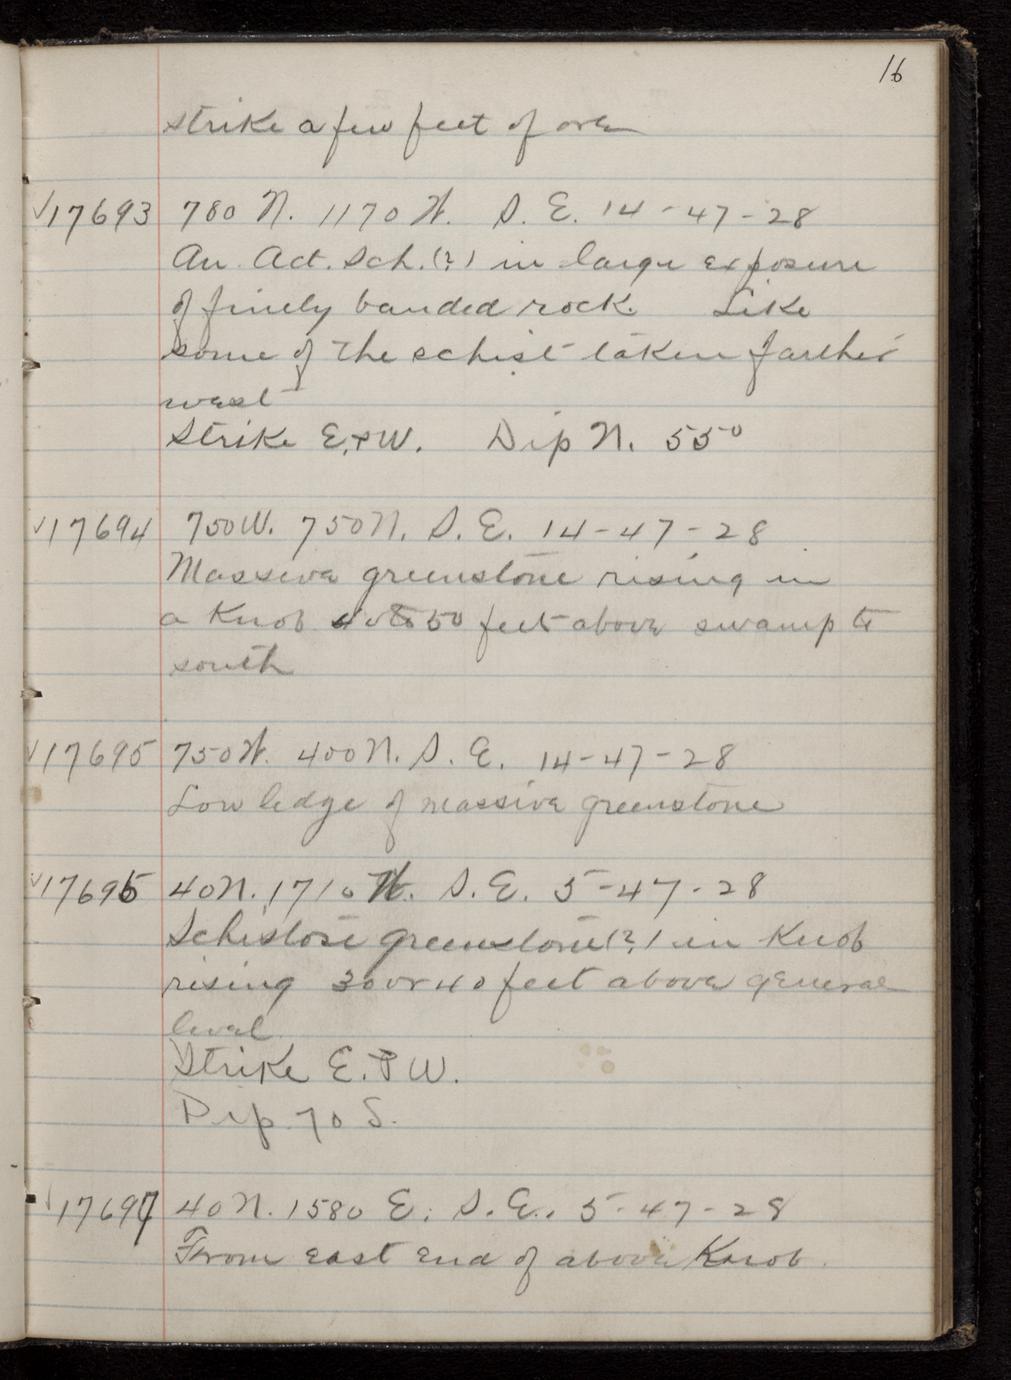 16
strike a few feet of ore
✓17693 780 N. 1170 W. S. E. 14-47-28
An Act. Sch. (?) in large exposure
of finely banded rock. Like
some of the schist taken farther
west
Strike E. & W. Dip N. 55°
✓17694 750 W. 750 N. S. E. 14-47-28
Massive greenstone rising in
a Knob 40 to 50 feet above swamp to
south
✓17695 750 W. 400 N. S. E. 14-47-28
Low ledge of massive greenstone
✓17696 40 N. 1710 W. S. E. 5-47-28
Schistose greenstone (?) in Knob
rising 30 or 40 feet above general
level
Strike E. & W.
Dip 70 S.
✓17697 40 N. 1580 E. S. E. 5-47-28
From east end of above Knob.